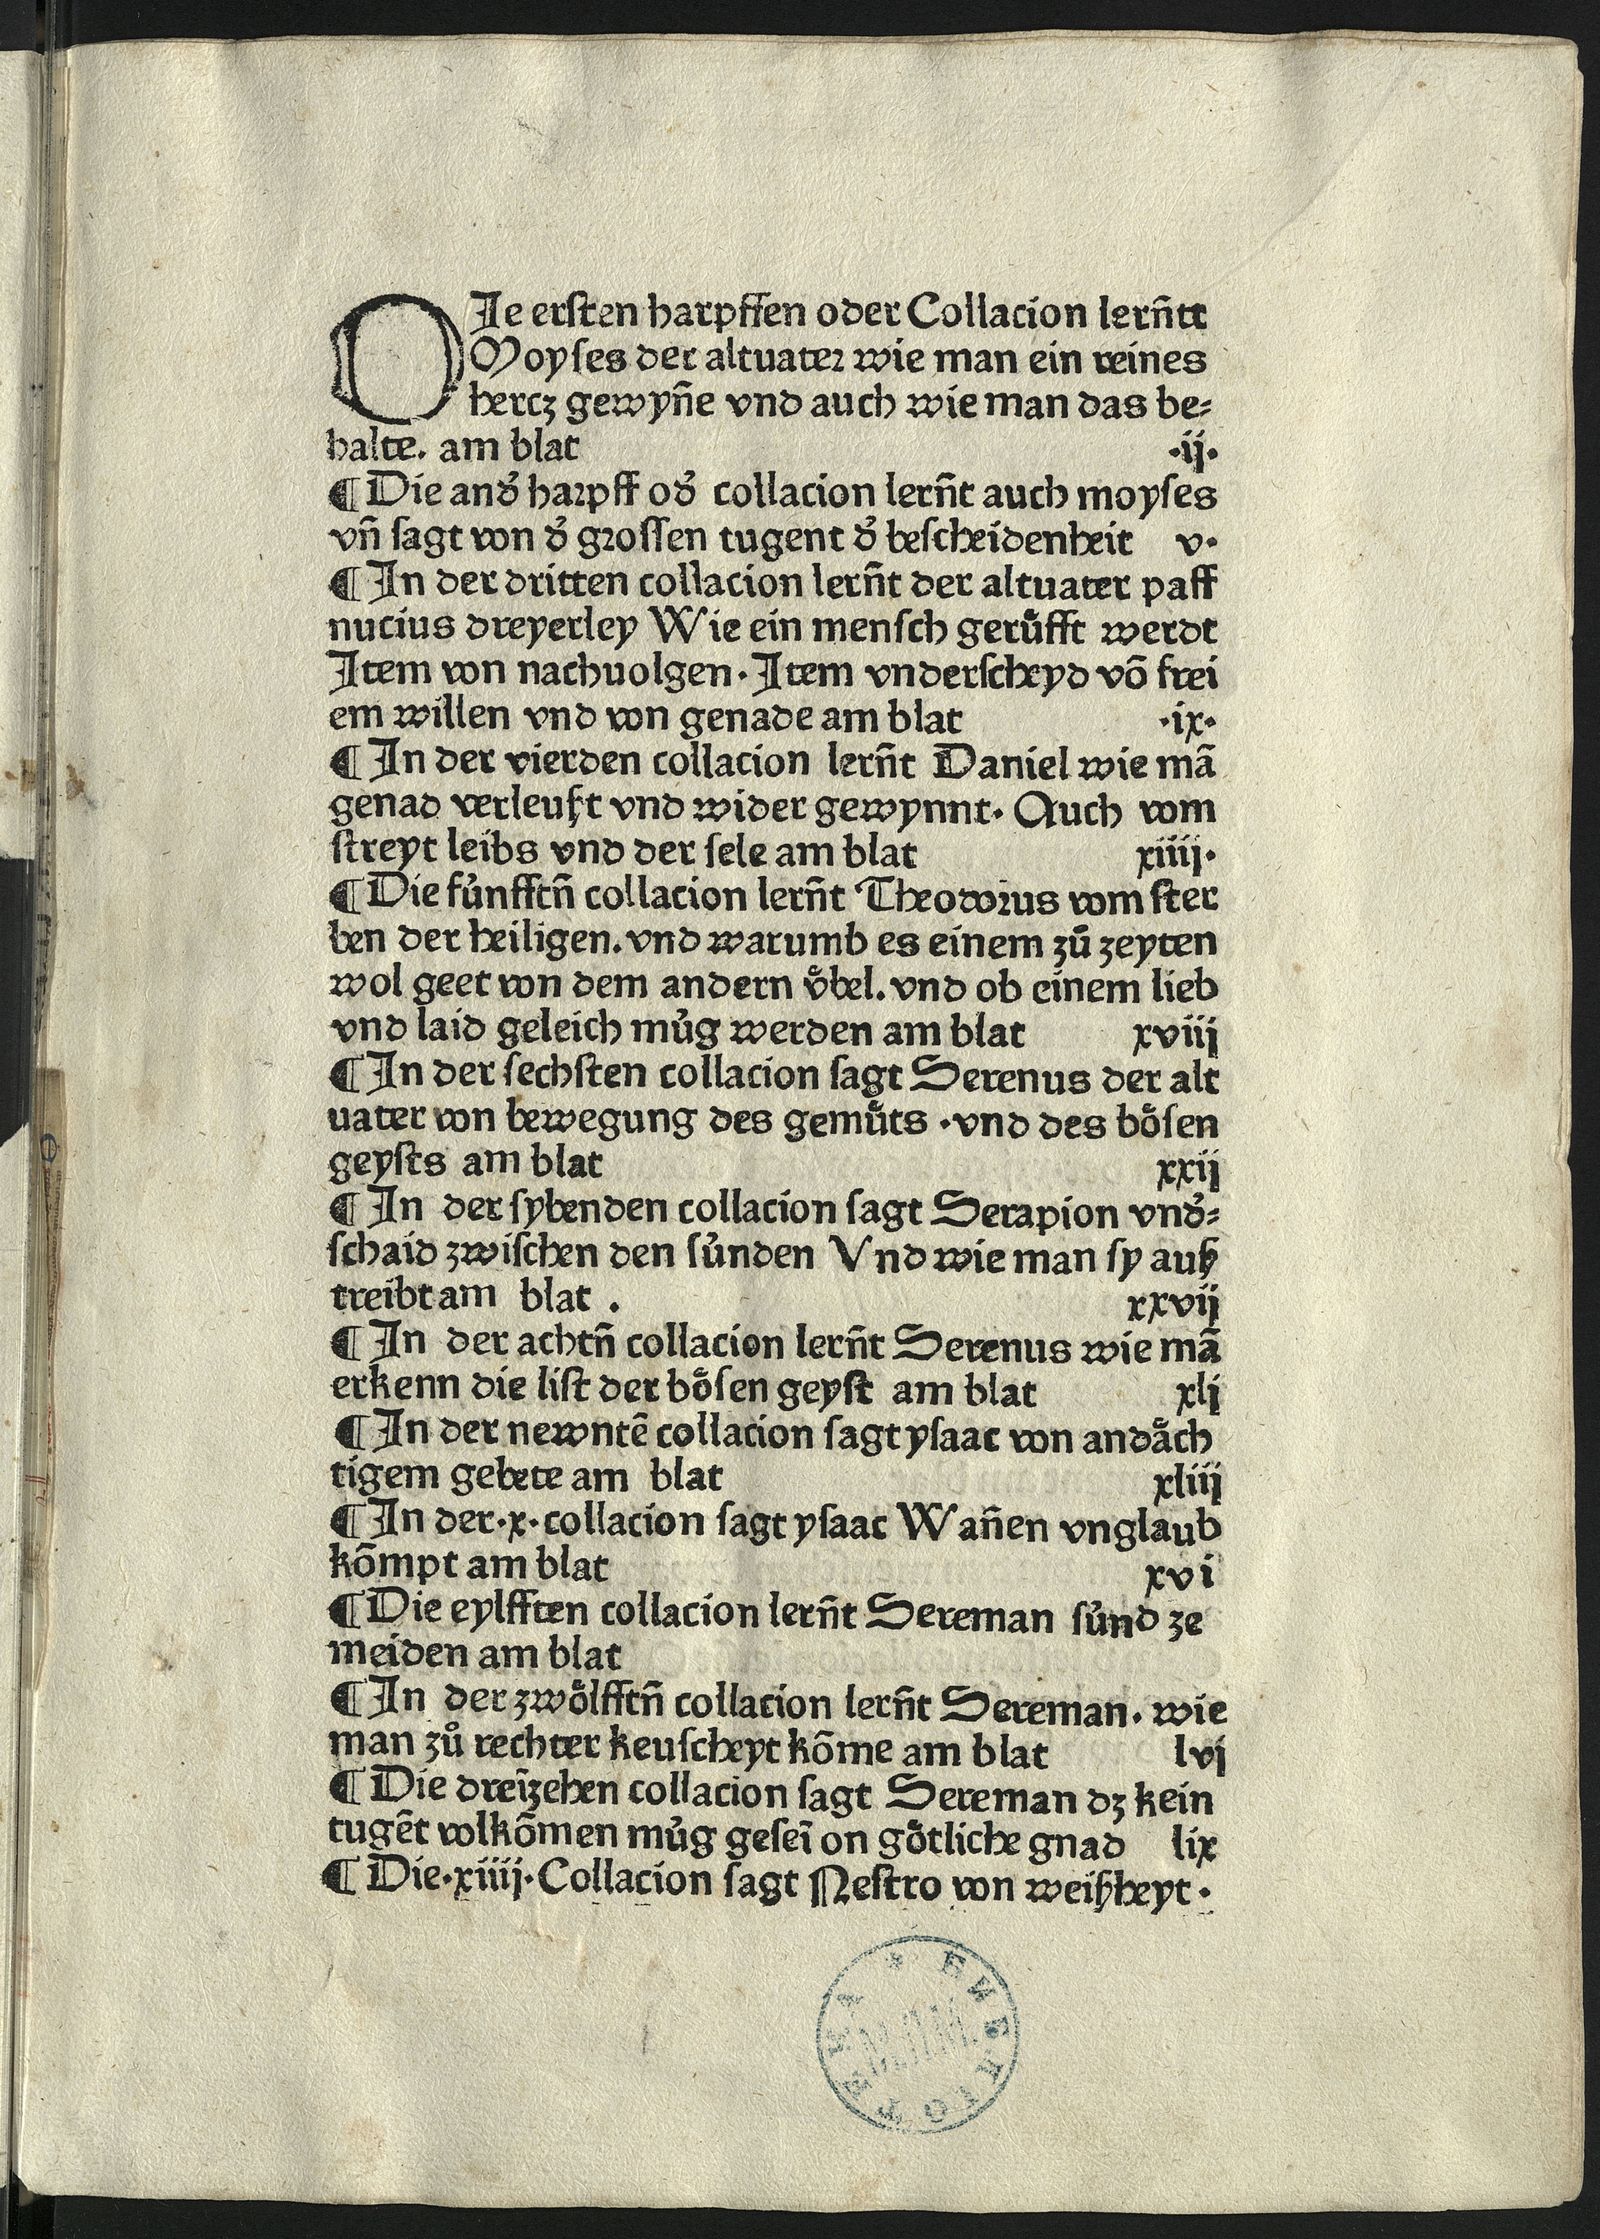 DIe ersten harpffen oder Collacion lern̄tt
Moyses der altuater wie man ein reines
hercz gewyn̄e vnd auch wie man das be⸗
halte. am blat ·ij·
¶ Die and̕ harpff od̕ collacion lern̄t auch moyses
vn̄ sagt von d̕ grossen tugent d̕ bescheidenheit v·
¶ In der dritten collacion lern̄t der altuater paff
nucius dreyerley Wie ein mensch geruͤfft werdt
Item von nachuolgen · Item vnderscheyd võ frei
em willen vnd von genade am blat ·ix·
¶ In der vierden collacion lern̄t Daniel wie mã
genad verleußt vnd wider gewynnt · Auch vom
streyt leibs vnd der sele am blat xiiij·
¶ Die fuͤnfftn̄ collacion lern̄t Theodorus vom ster
ben der heiligen. vnd warumb es einem zů zeyten
wol geet von dem andern vͤbel. vnd ob einem lieb
vnd laid geleich muͤg werden am blat xviij
¶ In der sechsten collacion sagt Serenus der alt
uater von bewegung des gemuͤts · vnd des boͤsen
geysts am blat xxij
¶ In der sybenden collacion sagt Serapion vnd̕⸗
schaid zwischen den suͤnden Vnd wie man sy auß
treibt am blat . xxvij
¶ In der achtn̄ collacion lern̄t Serenus wie mã
erkenn die list der boͤsen geyst am blat xlj
¶ In der newntē collacion sagt ysaac von andaͤch
tigem gebete am blat xliij
¶ In der · x · collacion sagt ysaac Wan̄en vnglaub
kõmpt am blat xvi
¶ Die eylfften collacion lern̄t Sereman suͤnd ze
meiden am blat
¶ In der zwoͤlfftn̄ collacion lern̄t Sereman. wie
man zů rechter keuscheyt kõme am blat lvj
¶ Die dreīzehen collacion sagt Sereman dz kein
tugēt volkõmen muͤg geseī on goͤtliche gnad lix
¶ Die · xiiij · Collacion sagt Nestro von weißheyt ·